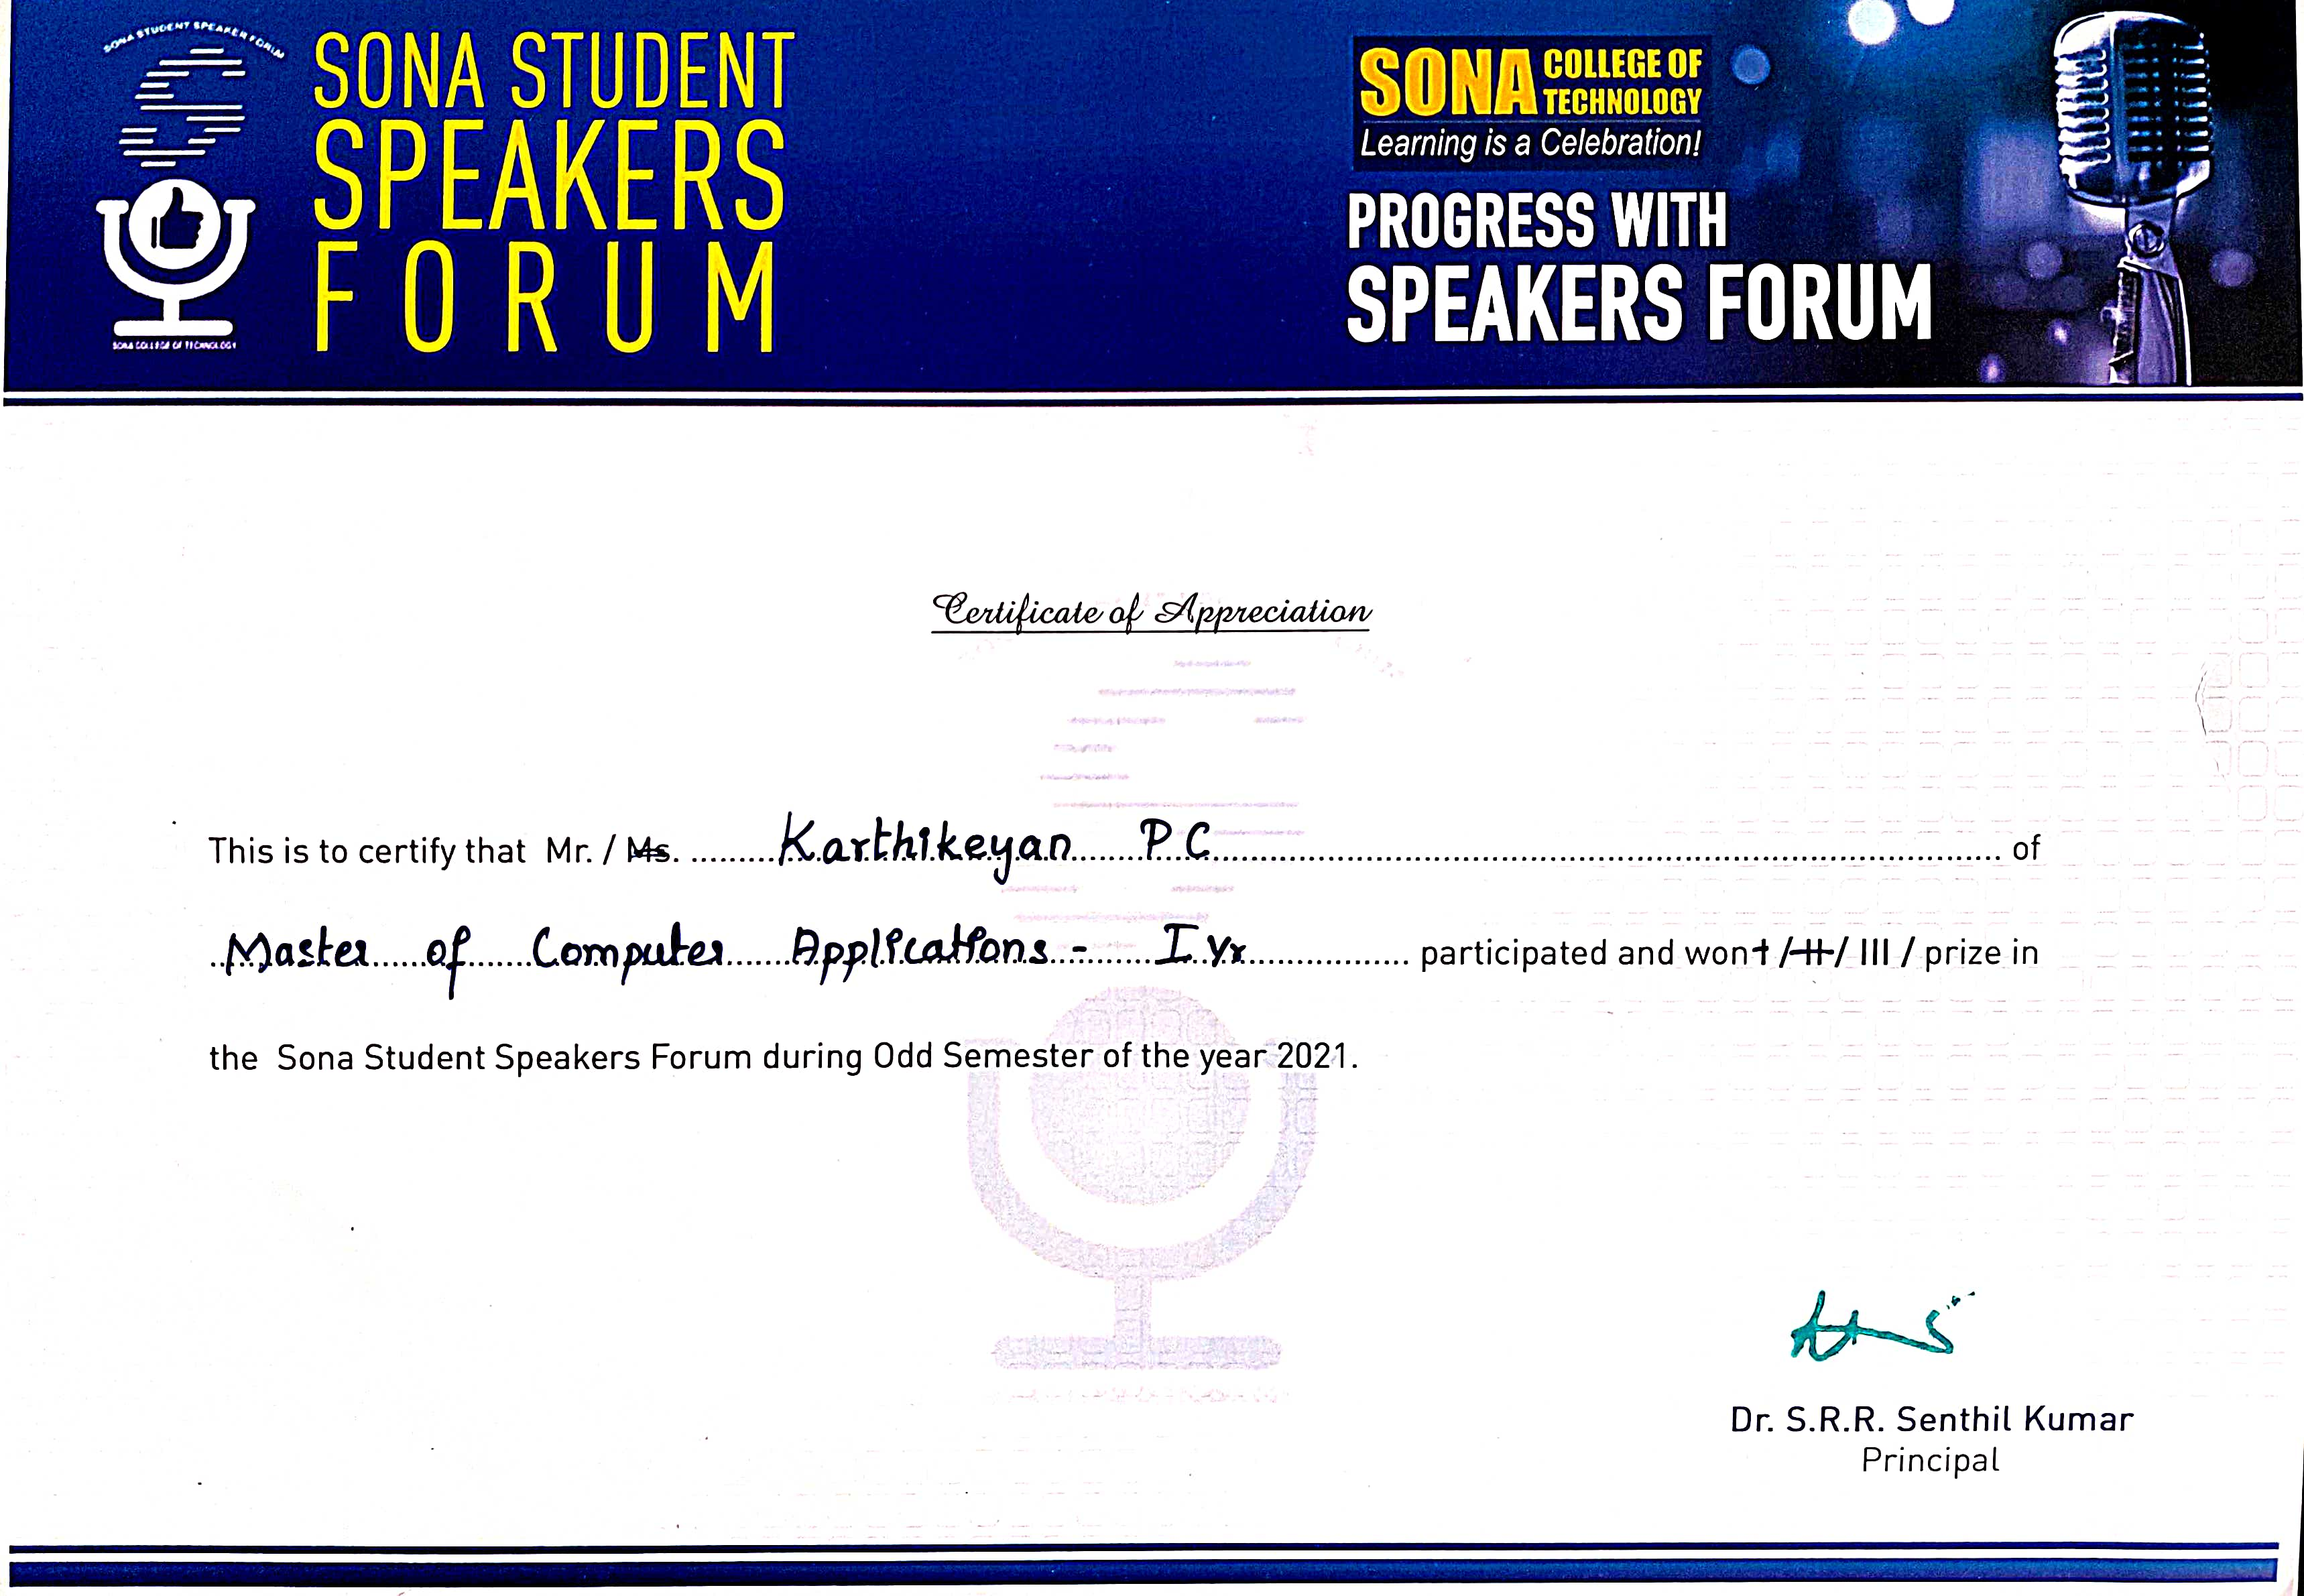 SONA STUDENT SPEAKER FORUM
SONA STUDENT
SPEAKERS
FORUM
SONA COLLEGE OF TECHNOLOGY
SONA COLLEGE OF
TECHNOLOGY
Learning is a Celebration!
PROGRESS WITH
SPEAKERS FORUM
Certificate of Appreciation
This is to certify that Mr. / Ms. Karthikeyan P C of
Master of Computer Applications - I yr participated and won I / II / III / prize in
the Sona Student Speakers Forum during Odd Semester of the year 2021.
Dr. S.R.R. Senthil Kumar
Principal